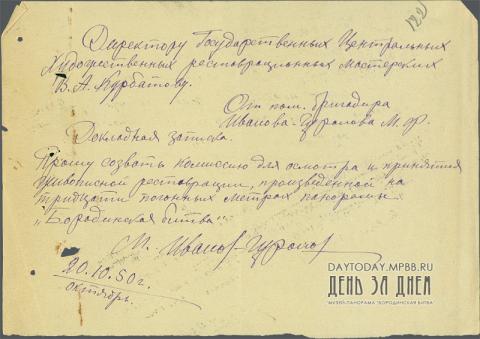 122
Директору Государственных Центральных
Художественных реставрационных мастерских
В.А. Курбатову.
От пом. бригадира
Иванова-Чуронова М.Ф.
Докладная записка.
Прошу созвать комиссию для осмотра и принятия
живописной реставрации, произведённой на
тридцати погонных метрах панорамы
„Бородинская битва“
М. Иванов-Чуронов
20.10.50 г.
октябрь.
DAYTODAY.MPBB.RU
ДЕНЬ ЗА ДНЕМ
МУЗЕЙ-ПАНОРАМА "БОРОДИНСКАЯ БИТВА"